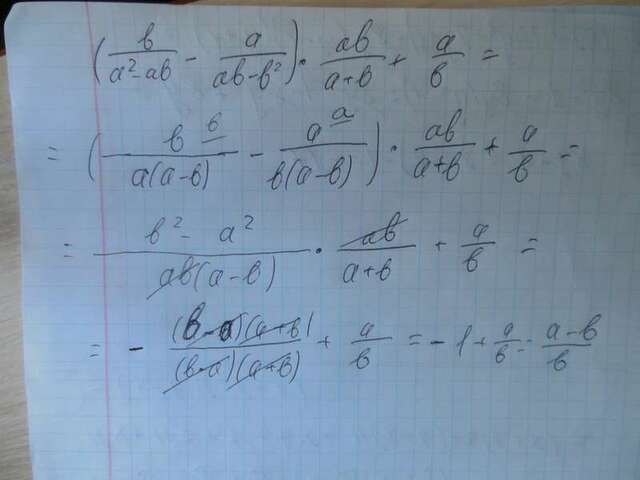 (b/(a²-ab) - a/(ab-b²)) · ab/(a+b) + a/b =
= (b b/(a(a-b)) - a a/(b(a-b))) · ab/(a+b) + a/b =
= (b² - a²)/(ab(a-b)) · ab/(a+b) + a/b =
= - (b-a)(a+b)/((b-a)(a+b)) + a/b = -1 + a/b = (a-b)/b